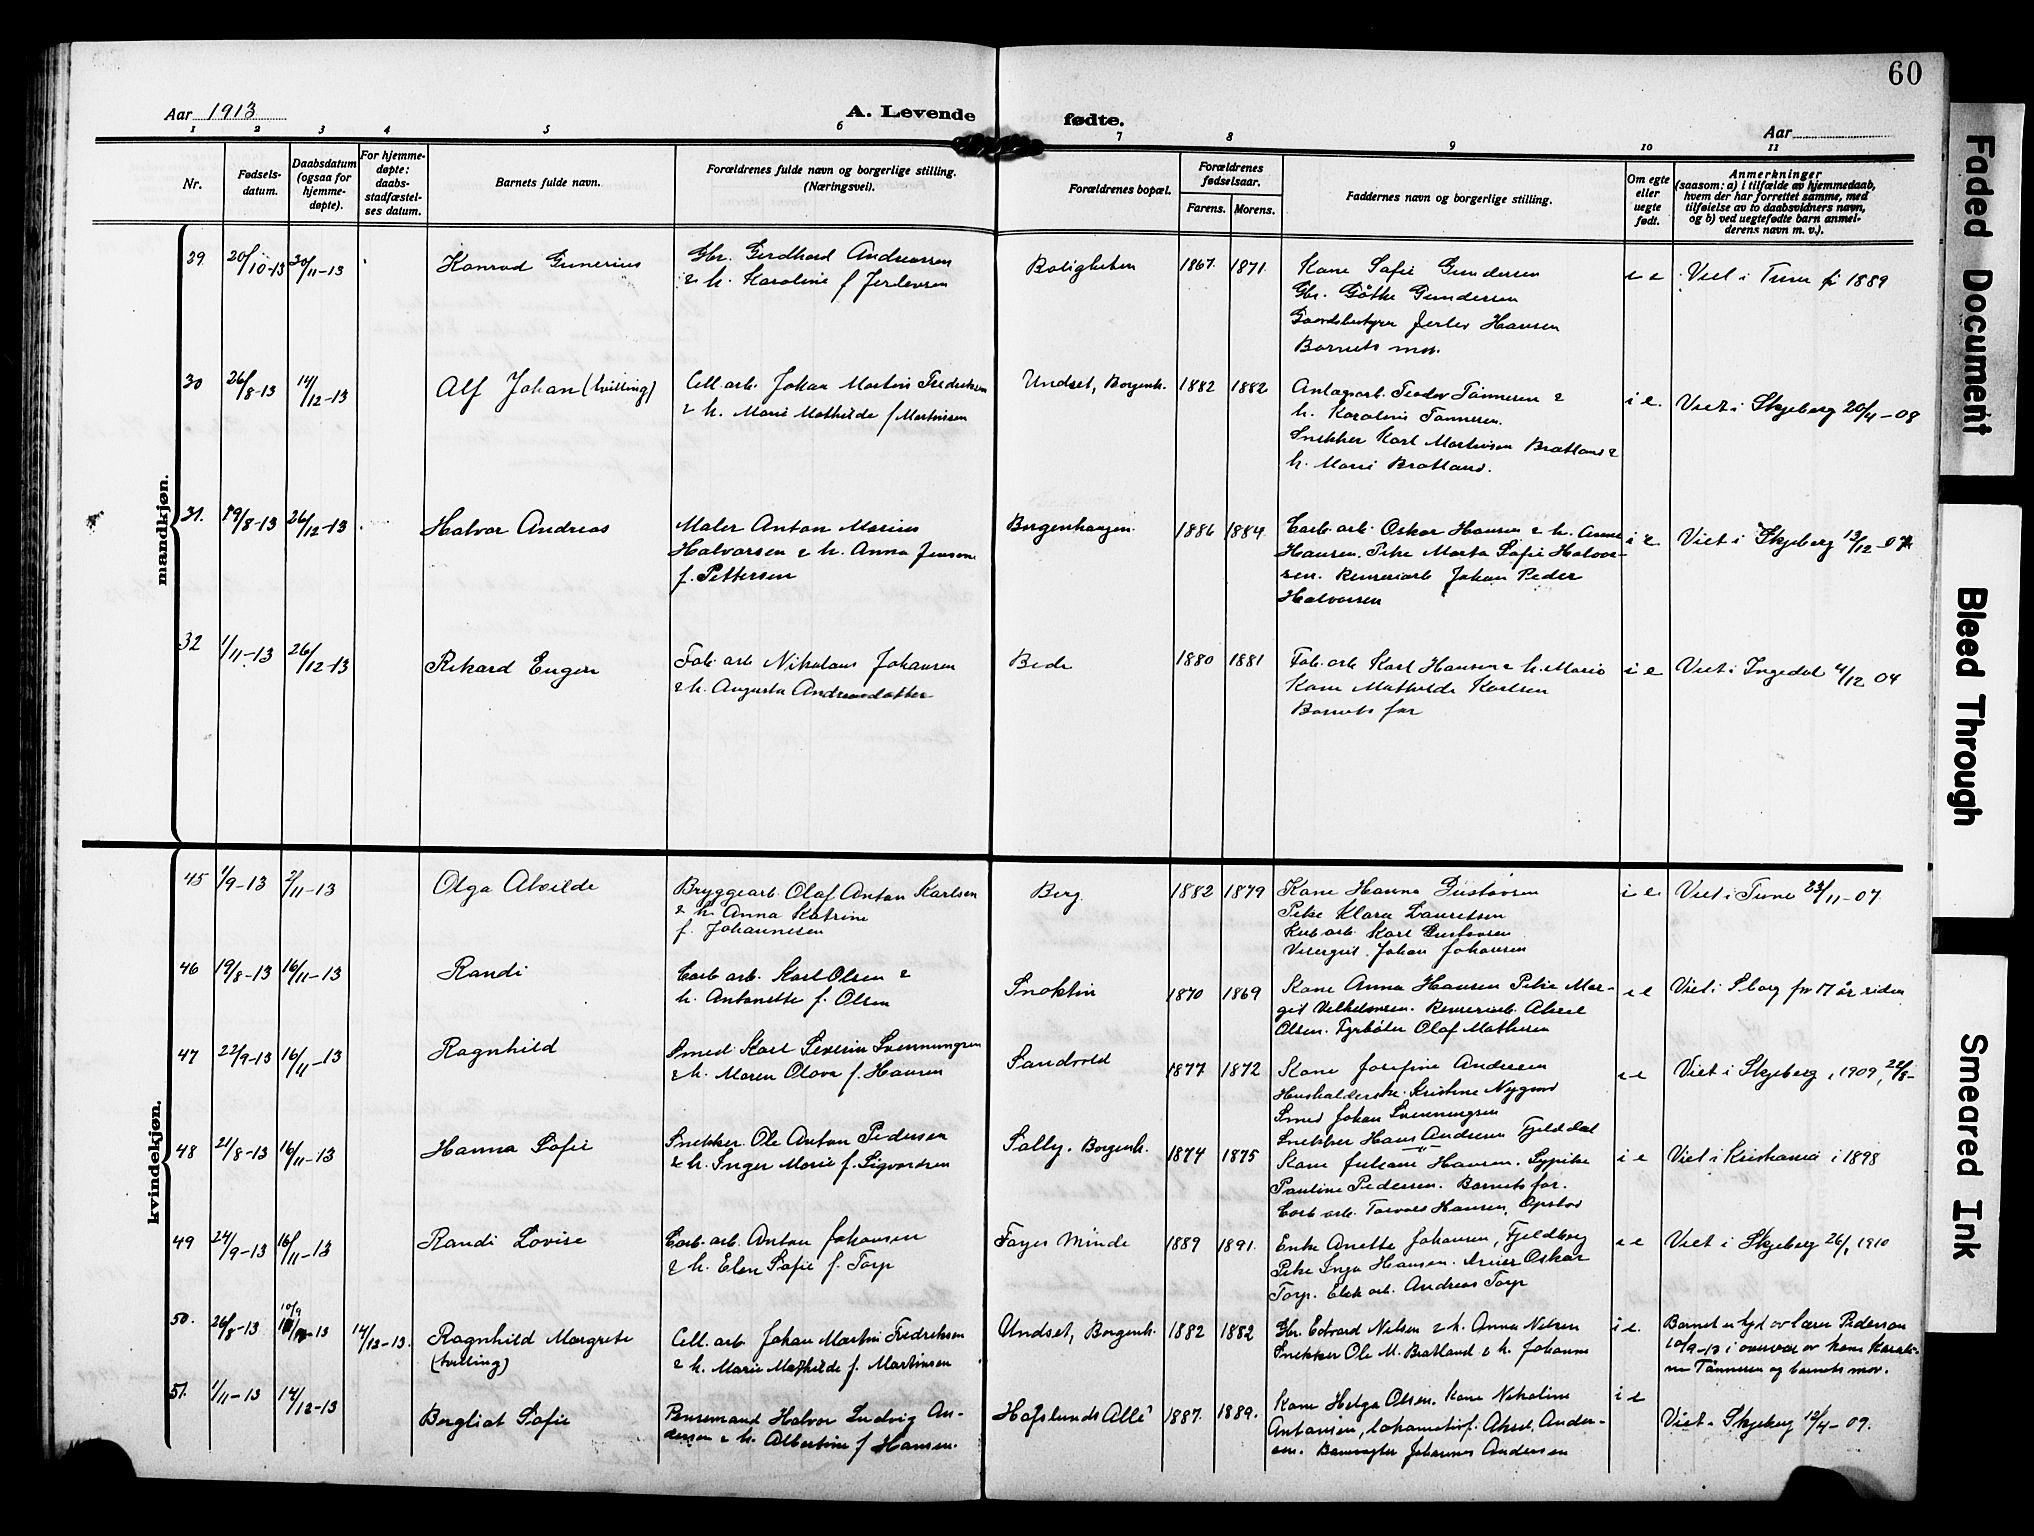 60
Aar 1913
A. Levende fødte.
Aar
1 2 3 4 5 6 7 8 9 10 11
Nr.
Fødsels-
datum.
Daabsdatum
(ogsaa for
hjemme-
døpte).
For hjemme-
døpte:
daabs-
stadfæstel-
ses datum.
Barnets fulde navn.
Forældrenes fulde navn og borgerlige stilling.
(Næringsvei).
Forældrenes bopæl.
Forældrenes
fødselsaar.
Farens. Morens.
Faddernes navn og borgerlige stilling.
Om egte
eller
uegte
født.
Anmerkninger
(saasom: a) i tilfælde av hjemmedaab,
hvem der har forrettet samme, med
tilføielse av to daabsvidners navn,
og b) ved uegtefødte barn anmel-
derens navn m. v.).
mandkjøn.
29 20/10-13 30/11-13
Konrad Gunerius
Gbr. Gerdhard Andreassen
& h. Karoline f.
Boligheten
1867. 1871.
Kone Sofie Gundersen
Gbr. Gøthe Gundersen
Gaardsbestyrer Jerlev Hansen
Barnets mor.
i e
Viet i Tune 1889
30 26/8-13 14/12-13
Alf Johan (tvilling)
Cell. arb. Johan Martin Fredriksen
& h. Marie Mathilde f. Martinsen
Undset, Borgenh.
1882 1882
Teodor Tønnesen &
h. Karoline Tønnesen.
Snekker Karl Martinsen Bratland &
h. Marie Bratland.
i e.
Viet i Skjeberg 20/4-08
31. 19/8-13 26/12-13
Halvor Andreas
Maler Anton Marius
Halvorsen & h. Anna Jenson
f. Pettersen
Borgenhaugen
1886 1884
Carb. arb. Oskar Hansen & h. Anne
Hansen. Pike Marta Sofie Halvor-
sen. Renseriarb. Johan Peder
Halvorsen
i e
Viet i Skjeberg 13/12-07
32 1/11-13 26/12-13
Rikard Eugen
Fab. arb. Nikolaus Johansen
& h. Augusta Andreasdatter
Bede
1880 1881
Fab. arb. Karl Hansen & h. Marie
Kone Mathilde Karlsen
Barnets far
i e
Viet i Ingedal 4/12 04
kvindekjøn.
45 1/9-13 2/11-13
Olga Alvilde
Bryggearb. Olaf Anton Karlsen
& h. Anna Katrine
f. Johannesen
Berg
1882 1879
Kone Hanna Gustavsen
Pike Klara Lauritsen
arb. Karl Gustavsen
Johan Johansen
i e
Viet i Tune 23/11-07.
46 19/8-13 16/11-13
Randi
Carb. arb. Karl Olsen &
h. Antonette f. Olsen
Snoktin
1870 1869
Kone Anna Hansen Pike Mar-
git Vilhelmsen. Renseriarb. Aksel
Olsen. Fyrbøter Olaf Mathisen
i e
Viet i Sborg for 17 år siden
47 22/9-13 16/11-13
Ragnhild
Smed Karl Severin Svenningsen
& h. Maren Olava f. Hansen
Sandvold
1877 1872
Kone Josefine Andersen
Husholderske. Kristine Nygård
Smed Johan Svenningsen
Snekker Hans Andersen Fjelddal
i e
Viet i Skjeberg, 1909,
48 21/8-13 16/11-13
Hanna Sofie
Snekker Ole Anton Pedersen
& h. Inger Marie f. Sigvardsen
Solly. Borgenh.
1874 1875
Kone Juliane Hansen. Sypike
Pauline Pedersen. Barnets far.
Carb. arb. Torvald Hansen, Opstad
i e
Viet i Kristiania i 1898
49 24/9-13 16/11-13
Randi Lovise
Carb. arb. Anton Johansen
& h. Elen Sofie f. Torp
Fayes Minde
1889 1891.
Enke Anette Johansen, Fjeldberg
Pike Inga Hansen. Oskar
Torp. Elek. arb. Andreas Torp
i e
Viet i Skjeberg 26/1 1910
50. 26/8-13 10/9-13 14/12-13.
Ragnhild Margrete
(tvilling)
Cell. arb. Johan Martin Fredriksen
& h. Marie Mathilde f. Martinsen
Undset, Borgenh.
1882 1882
Gbr. Edvard Nilsen & h. Anna Nilsen
Snekker Ole M. Bratland & h. Johanne
i e.
Barnet er hjd. av lærer Pederson
10/9-13 i overvær av kone Karoli-
ne Tønnesen og barnets mor.
51. 1/11-13 14/12-13
Bergliot Sofie
Bussemand Halvor Ludvig An-
dersen & h. Albertine f. Hansen.
Hafslunds Allé
1887. 1889.
Kone Helga Olsen. Kone Nikoline
Antonsen, Lokomotivf. Aksel Ander-
sen. Banevogter Johannes Andersen
i e
Viet i Skjeberg 12/4-09.
Faded Document
Bleed Through
Smeared Ink